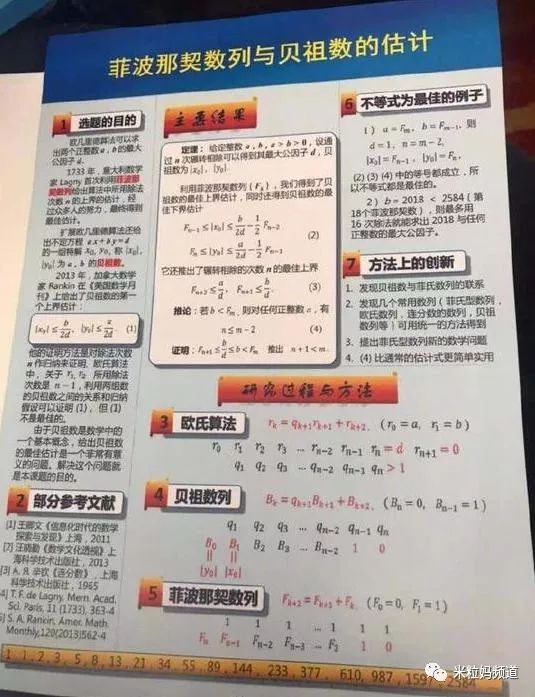 菲波那契数列与贝祖数的估计
1 选题的目的
欧几里德算法可以求
出两个正整数 a, b 的最大
公因子 d.
1733 年，意大利数学
家 Lagny 首次利用菲波那
契数列给出算法中所用除法
次数 n 的上界的估计，经
过众多人的努力，最终得到
最佳估计。
扩展欧几里德算法还给
出不定方程 ax+by=d
的一组特解 x₀, y₀, 称 |x₀|,
|y₀| 为 a, b 的贝祖数。
2013 年，加拿大数学
家 Rankin 在《美国数学月
刊》上给出了贝祖数的第一
个上界估计：
|x₀| ≤ b/2d, |y₀| ≤ a/2d. (1)
他的证明方法是对除法次数
n 作归纳来证明. 欧氏算法
中，关于 r₁, r₂ 所用除法
次数是 n − 1，利用两组数
的贝祖数之间的关系和归纳
假设可以证明 (1)，但 (1)
不是最佳的。
由于贝祖数是数学中的
一个基本概念，给出贝祖数
的最佳估计是一个非常有意
义的问题。解决这个问题就
是本课题的目的。
2 部分参考文献
[1] 王卿文《信息化时代的数学
探索与发现》上海，2011
王晓勤《数学文化透视》上
海科学技术出版社，2013
[3] A. Я. 辛钦《连分数》，上海
科学技术出版社，1965
4] T. F. de Lagny. Mem. Acad.
Sci. Paris, 11 (1733), 363-4
5] S. A. Rankin, Amer. Math.
Monthly,120(2013)562-4
主要结果
定理：给定整数 a, b, a > b > 0，设通
过 n 次辗转相除可以得到其最大公因子 d，贝
祖数为 |x₀|, |y₀|.
利用菲波那契数列 {Fₖ}，我们得到了贝
祖数的最佳上界估计，同时还得到贝祖数的最
佳下界估计
Fₙ₋₁ ≤ |x₀| ≤ b/2d − 1/2 Fₙ₋₂
(2)
Fₙ ≤ |y₀| ≤ a/2d − 1/2 Fₙ₋₁
它还推出了辗转相除的次数 n 的最佳上界
Fₙ₊₂ ≤ a/d, Fₙ₊₁ ≤ b/d. (3)
推论：若 b < Fₘ, 则对任何正整数 a，有
n ≤ m − 2 (4)
证明：Fₙ₊₁ ≤ b/d ≤ b < Fₘ 推出 n + 1 < m.
6 不等式为最佳的例子
1) a = Fₘ, b = Fₘ₋₁, 则
d = 1, n = m − 2,
|x₀| = Fₙ₋₁, |y₀| = Fₙ.
(2) (3) (4) 中的等号都成立，所
以不等式都是最佳的。
2) b = 2018 < 2584 (第
18个菲波那契数)，则最多用
16 次除法就能求出 2018 与任何
正整数的最大公因子。
7 方法上的创新
1. 发现贝祖数与菲氏数列的联系
2. 发现几个常用数列（菲氏型数列，
欧氏数列，连分数的数列，贝祖
数列等）可用统一的方法得到
3. 提出菲氏型数列新的数学问题
4. (4) 比通常的估计式更简单实用
研究过程与方法
3 欧氏算法 rₖ = qₖ₊₁rₖ₊₁ + rₖ₊₂, (r₀ = a, r₁ = b)
r₀ r₁ r₂ r₃ ... rₙ₋₂ rₙ₋₁ rₙ = d rₙ₊₁ = 0
q₁ q₂ q₃ ... qₙ₋₂ qₙ₋₁ qₙ > 1
4 贝祖数列 Bₖ = qₖ₊₁Bₖ₊₁ + Bₖ₊₂, (Bₙ = 0, Bₙ₋₁ = 1)
q₁ q₂ q₃ ... qₙ₋₂ qₙ₋₁ qₙ
B₀ B₁ B₂ B₃ ... Bₙ₋₂ 1 0
|| ||
|y₀| |x₀|
5 菲波那契数列 Fₖ₊₂ = Fₖ₊₁ + Fₖ, (F₀ = 0, F₁ = 1)
1 1 1 ... 1 1 1
Fₙ Fₙ₋₁ Fₙ₋₂ Fₙ₋₃ ... F₂ 1 0
1, 1, 2, 3, 5, 8, 13, 21, 34, 55, 89, 144, 233, 377, 610, 987, 1597, 2584
米粒妈频道